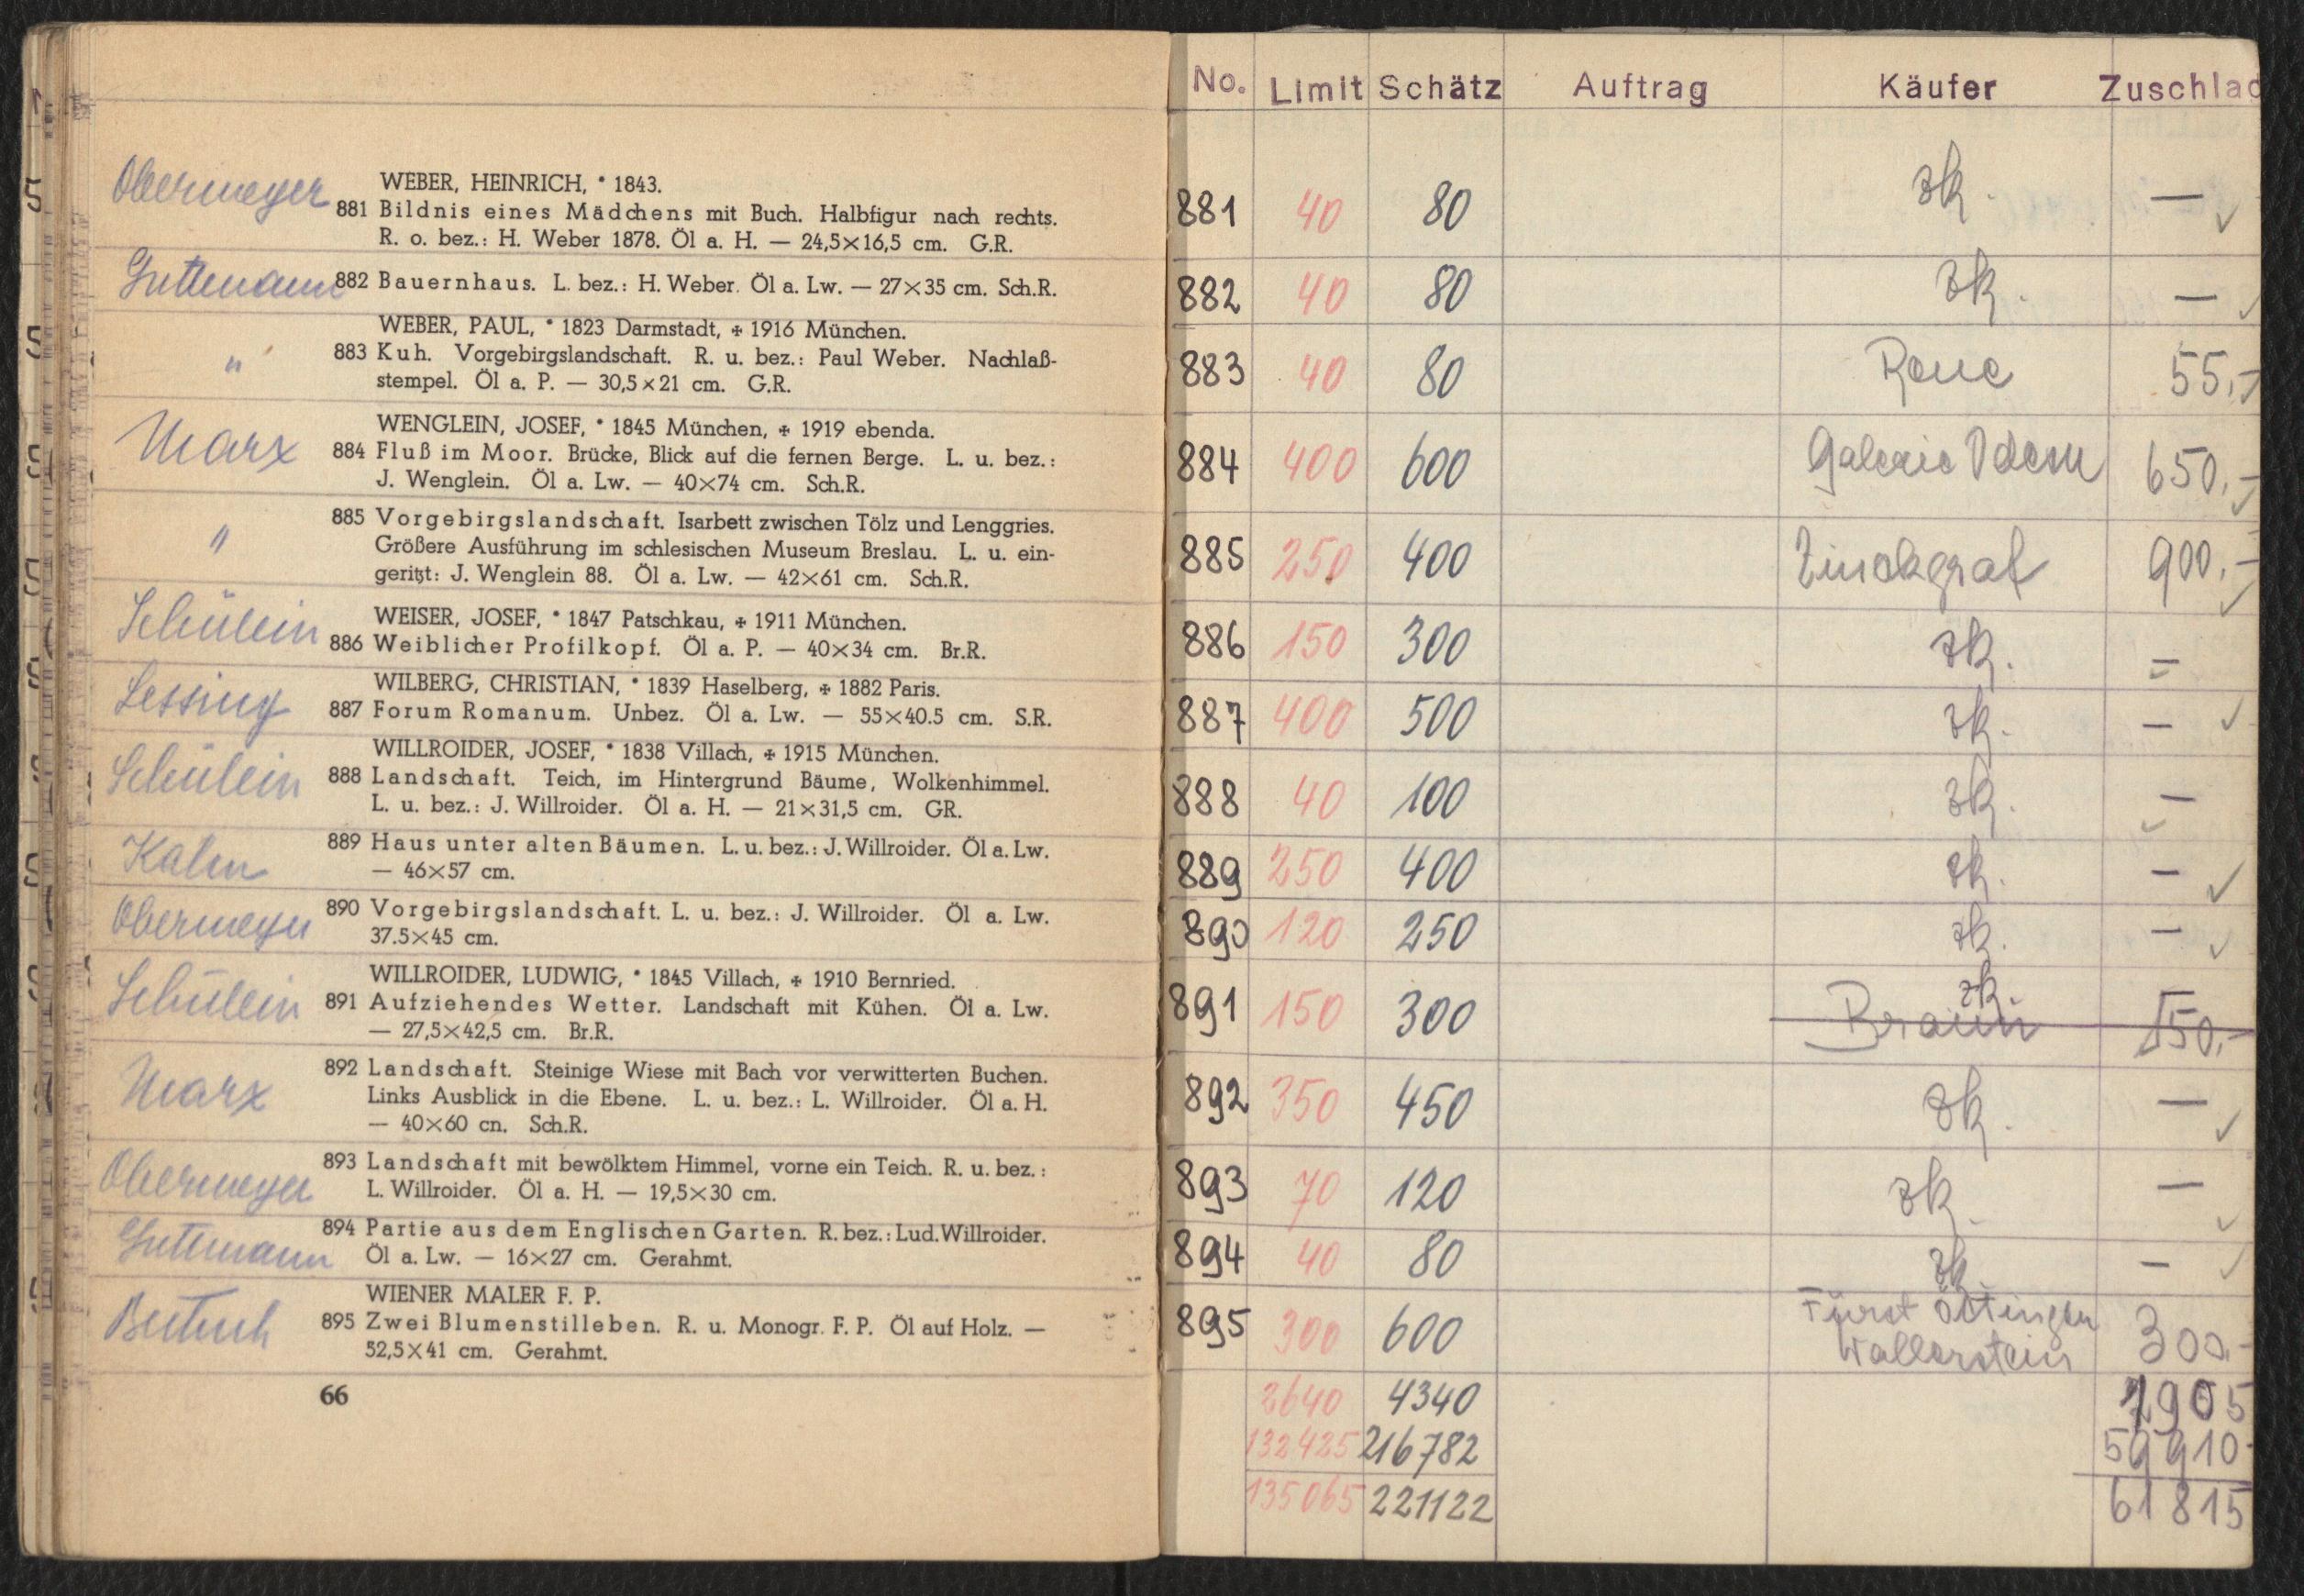 Obermeyer
WEBER, HEINRICH, * 1843.
881 Bildnis eines Mädchens mit Buch. Halbfigur nach rechts.
R. o. bez.: H. Weber 1878. Öl a. H. — 24,5×16,5 cm. G.R.
Guttmann
882 Bauernhaus. L. bez.: H. Weber. Öl a. Lw. — 27×35 cm. Sch.R.
WEBER, PAUL, * 1823 Darmstadt, ✠ 1916 München.
"
883 Kuh. Vorgebirgslandschaft. R. u. bez.: Paul Weber. Nachlaß-
stempel. Öl a. P. — 30,5×21 cm. G.R.
Marx
WENGLEIN, JOSEF, * 1845 München, ✠ 1919 ebenda.
884 Fluß im Moor. Brücke, Blick auf die fernen Berge. L. u. bez.:
J. Wenglein. Öl a. Lw. — 40×74 cm. Sch.R.
"
885 Vorgebirgslandschaft. Isarbett zwischen Tölz und Lenggries.
Größere Ausführung im schlesischen Museum Breslau. L. u. ein-
geritzt: J. Wenglein 88. Öl a. Lw. — 42×61 cm. Sch.R.
Schülein
WEISER, JOSEF, * 1847 Patschkau, ✠ 1911 München.
886 Weiblicher Profilkopf. Öl a. P. — 40×34 cm. Br.R.
Lessing
WILBERG, CHRISTIAN, * 1839 Haselberg, ✠ 1882 Paris.
887 Forum Romanum. Unbez. Öl a. Lw. — 55×40.5 cm. S.R.
Schülein
WILLROIDER, JOSEF, * 1838 Villach, ✠ 1915 München.
888 Landschaft. Teich, im Hintergrund Bäume, Wolkenhimmel.
L. u. bez.: J. Willroider. Öl a. H. — 21×31,5 cm. GR.
Kahn
889 Haus unter alten Bäumen. L. u. bez.: J. Willroider. Öl a. Lw.
— 46×57 cm.
Obermeyer
890 Vorgebirgslandschaft. L. u. bez.: J. Willroider. Öl a. Lw.
37.5×45 cm.
Schülein
WILLROIDER, LUDWIG, * 1845 Villach, ✠ 1910 Bernried.
891 Aufziehendes Wetter. Landschaft mit Kühen. Öl a. Lw.
— 27,5×42,5 cm. Br.R.
Marx
892 Landschaft. Steinige Wiese mit Bach vor verwitterten Buchen.
Links Ausblick in die Ebene. L. u. bez.: L. Willroider. Öl a. H.
— 40×60 cn. Sch.R.
Obermeyer
893 Landschaft mit bewölktem Himmel, vorne ein Teich. R. u. bez.:
L. Willroider. Öl a. H. — 19,5×30 cm.
Guttmann
894 Partie aus dem Englischen Garten. R. bez.: Lud. Willroider.
Öl a. Lw. — 16×27 cm. Gerahmt.
WIENER MALER F. P.
895 Zwei Blumenstilleben. R. u. Monogr. F. P. Öl auf Holz. —
52,5×41 cm. Gerahmt.
66
No. Limit Schätz Auftrag Käufer Zuschlag
881 40 80 zk. — ✓
882 40 80 zk. — ✓
883 40 80 55.-
884 400 600 Galerie Odem 650.- ✓
885 250 400 Zinckgraf 900.- ✓
886 150 300 zk. — ✓
887 400 500 zk. — ✓
888 40 100 zk. — ✓
889 250 400 zk. — ✓
890 120 250 zk. — ✓
zk.
891 150 300 Braun 150.-
892 350 450 zk. — ✓
893 70 120 zk. — ✓
894 40 80 zk. — ✓
895 300 600 Fürst Öttingen
Wallerstein 300.-
2640 4340 1905
132425 216782 59910-
135065 221122 61815